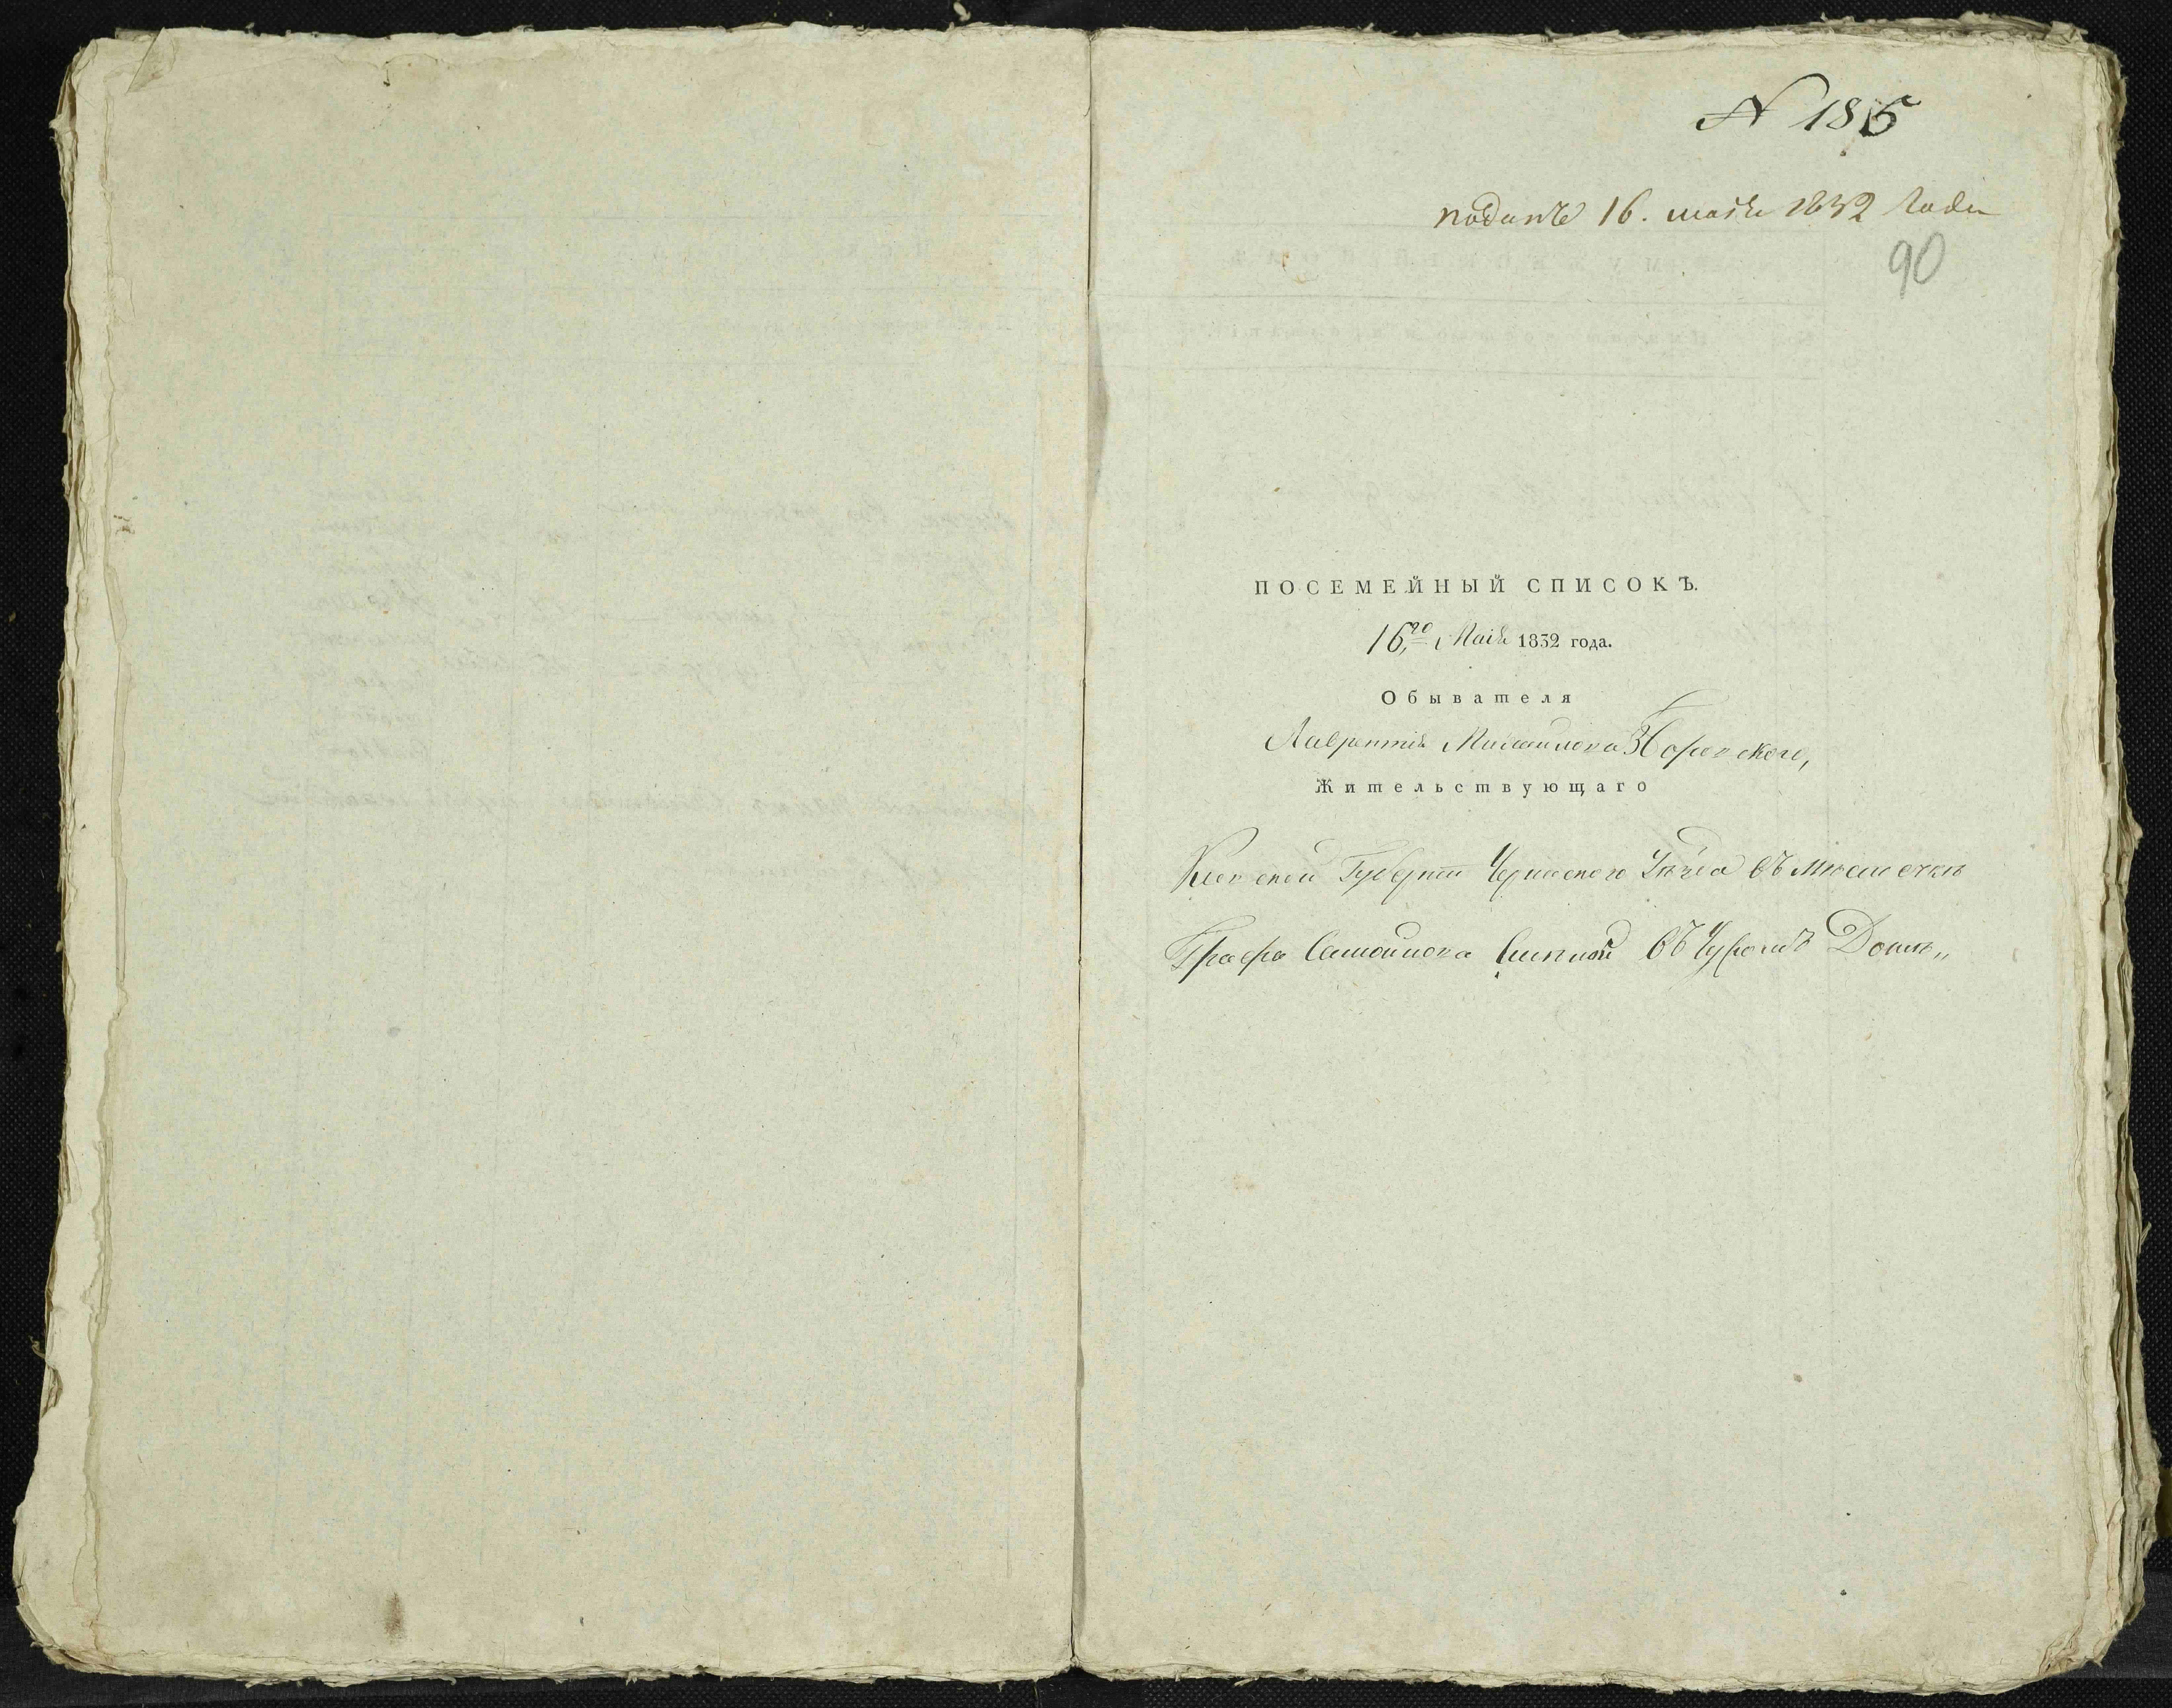 N 185
поданъ 16. маія 1832 года
90
ПОСЕМЕЙНЫЙ СПИСОКЪ.
16.го Маія 1832 года.
Обывателя
Лаврентія Михайлова Зборовского,
Жительствующаго
Кіевской Губерніи Черкаского Уѣзда въ мѣстечкѣ
Графа Самойлова Смѣлой въ Чужомъ Домѣ,,